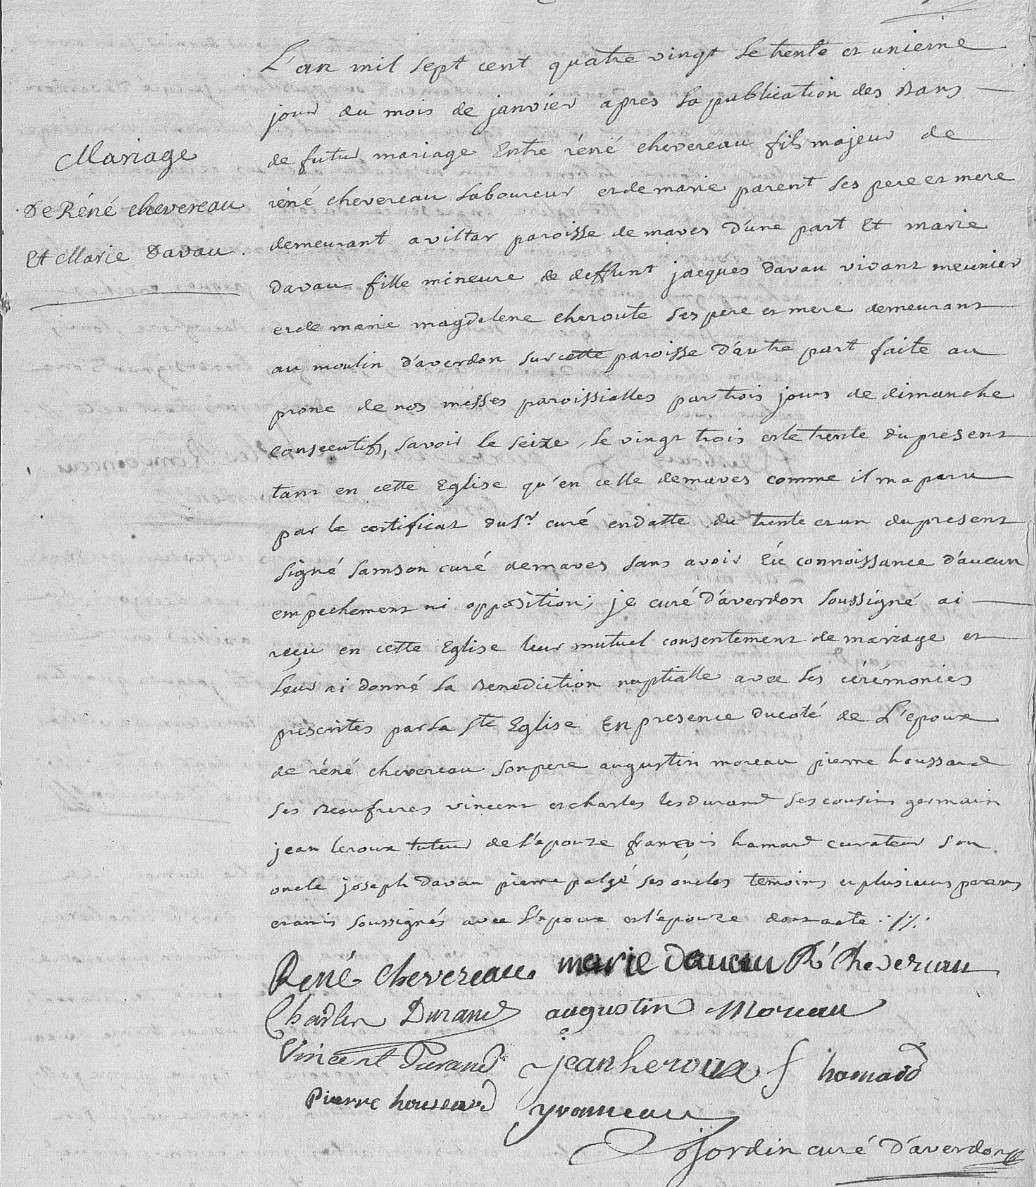 Mariage
De Réné chevereau
Et Marie Davau.
L'an mil sept cent quatre vingt le trente et unieme
jour du mois de janvier apres la publication des Bans
de futur mariage Entre réné chevereau fils majeur de
réné chevereau laboureur et de marie parent ses pere et mere
demeurant a villar paroisse de maves d'une part Et marie
davau fille mineure de deffunt jacques davau vivant meunier
et de marie magdelene cheroute ses père et mere demeurant
au moulin d'averdon sur cette paroisse d'autre part faite au
prone de nos messes paroissialles par trois jours de dimanche
consecutifs, savoir le seize, le vingt trois et le trente du present
tant en cette Eglise qu'en celle de maves comme il m'a paru
par le certificat du Sr. curé en datte du trente et un du present
signé samson curé de maves sans avoir Eu connoissance d'aucun
empechement ni opposition, je curé d'averdon soussigné ai
reçu en cette Eglise leur mutuel consentement de mariage et
leur ai donné la Benediction nuptialle avec les cérémonies
prescrites par la Ste Eglise En presence du coté de L'epoux
de réné chevereau son pere augustin moreau pierre houssard
ses Beaufreres vincent et charles les durand ses cousins germain
jean leroux tuteur de l'epouze françois hamard curateur son
oncle joseph davau pierre palgé ses oncles temoins et plusieurs parens
et amis soussignés avec l'epoux et l'epouze dont acte ./.
René chevereau marie davau R chevereau
Charles Durand augustin Moreau
Vincent Durand jean leroux f hamard
Pierre houssard yvonneau
Jordin curé d'averdon